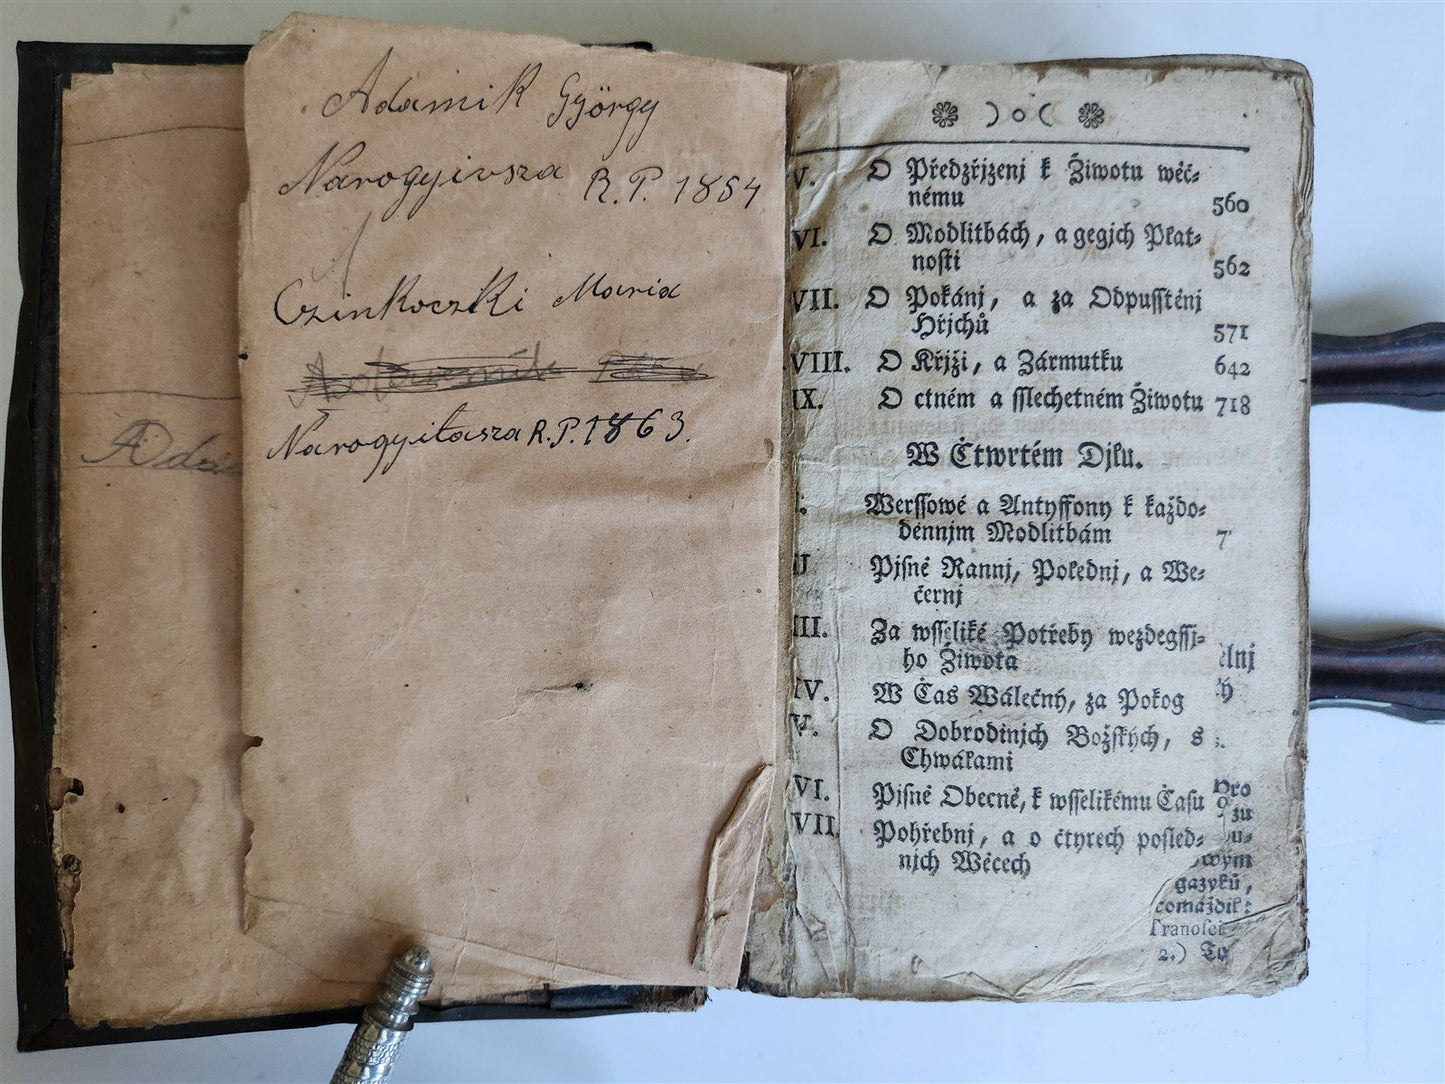 Adamik György
Narogyivsza R.P. 1854
Czinkoczki Maria
Narogyitasza R.P. 1863.
Ada
V. O Předzřjzenj k Žiwotu wěč-
nému 560
VI. O Modlitbách, a gegich Platnosti
nosti 562
VII. O Pokánj, a za Odpusstěnj
Hřjchů 571
VIII. O Křjži, a Zármutku 642
IX. O ctném a sslechetném Žiwotu 718
W Čtwrtém Djlu.
I. Werssowé a Antyffony k každo-
dennjm Modlitbám 7
II Pjsně Rannj, Polednj, a We-
černj
III. Za wsseliké Potřeby wezdegssj-
ho Žiwota
IV. W Čas Wálečný, za Pokog
V. O Dobrodinjch Božských, s
Chwálami
VI. Pjsně Obecné, k wsselikému Času
VII. Pohřebnj, a o čtyrech posled-
njch Wěcech
elnj
pro
zu
owým
gazyků,
2.) To